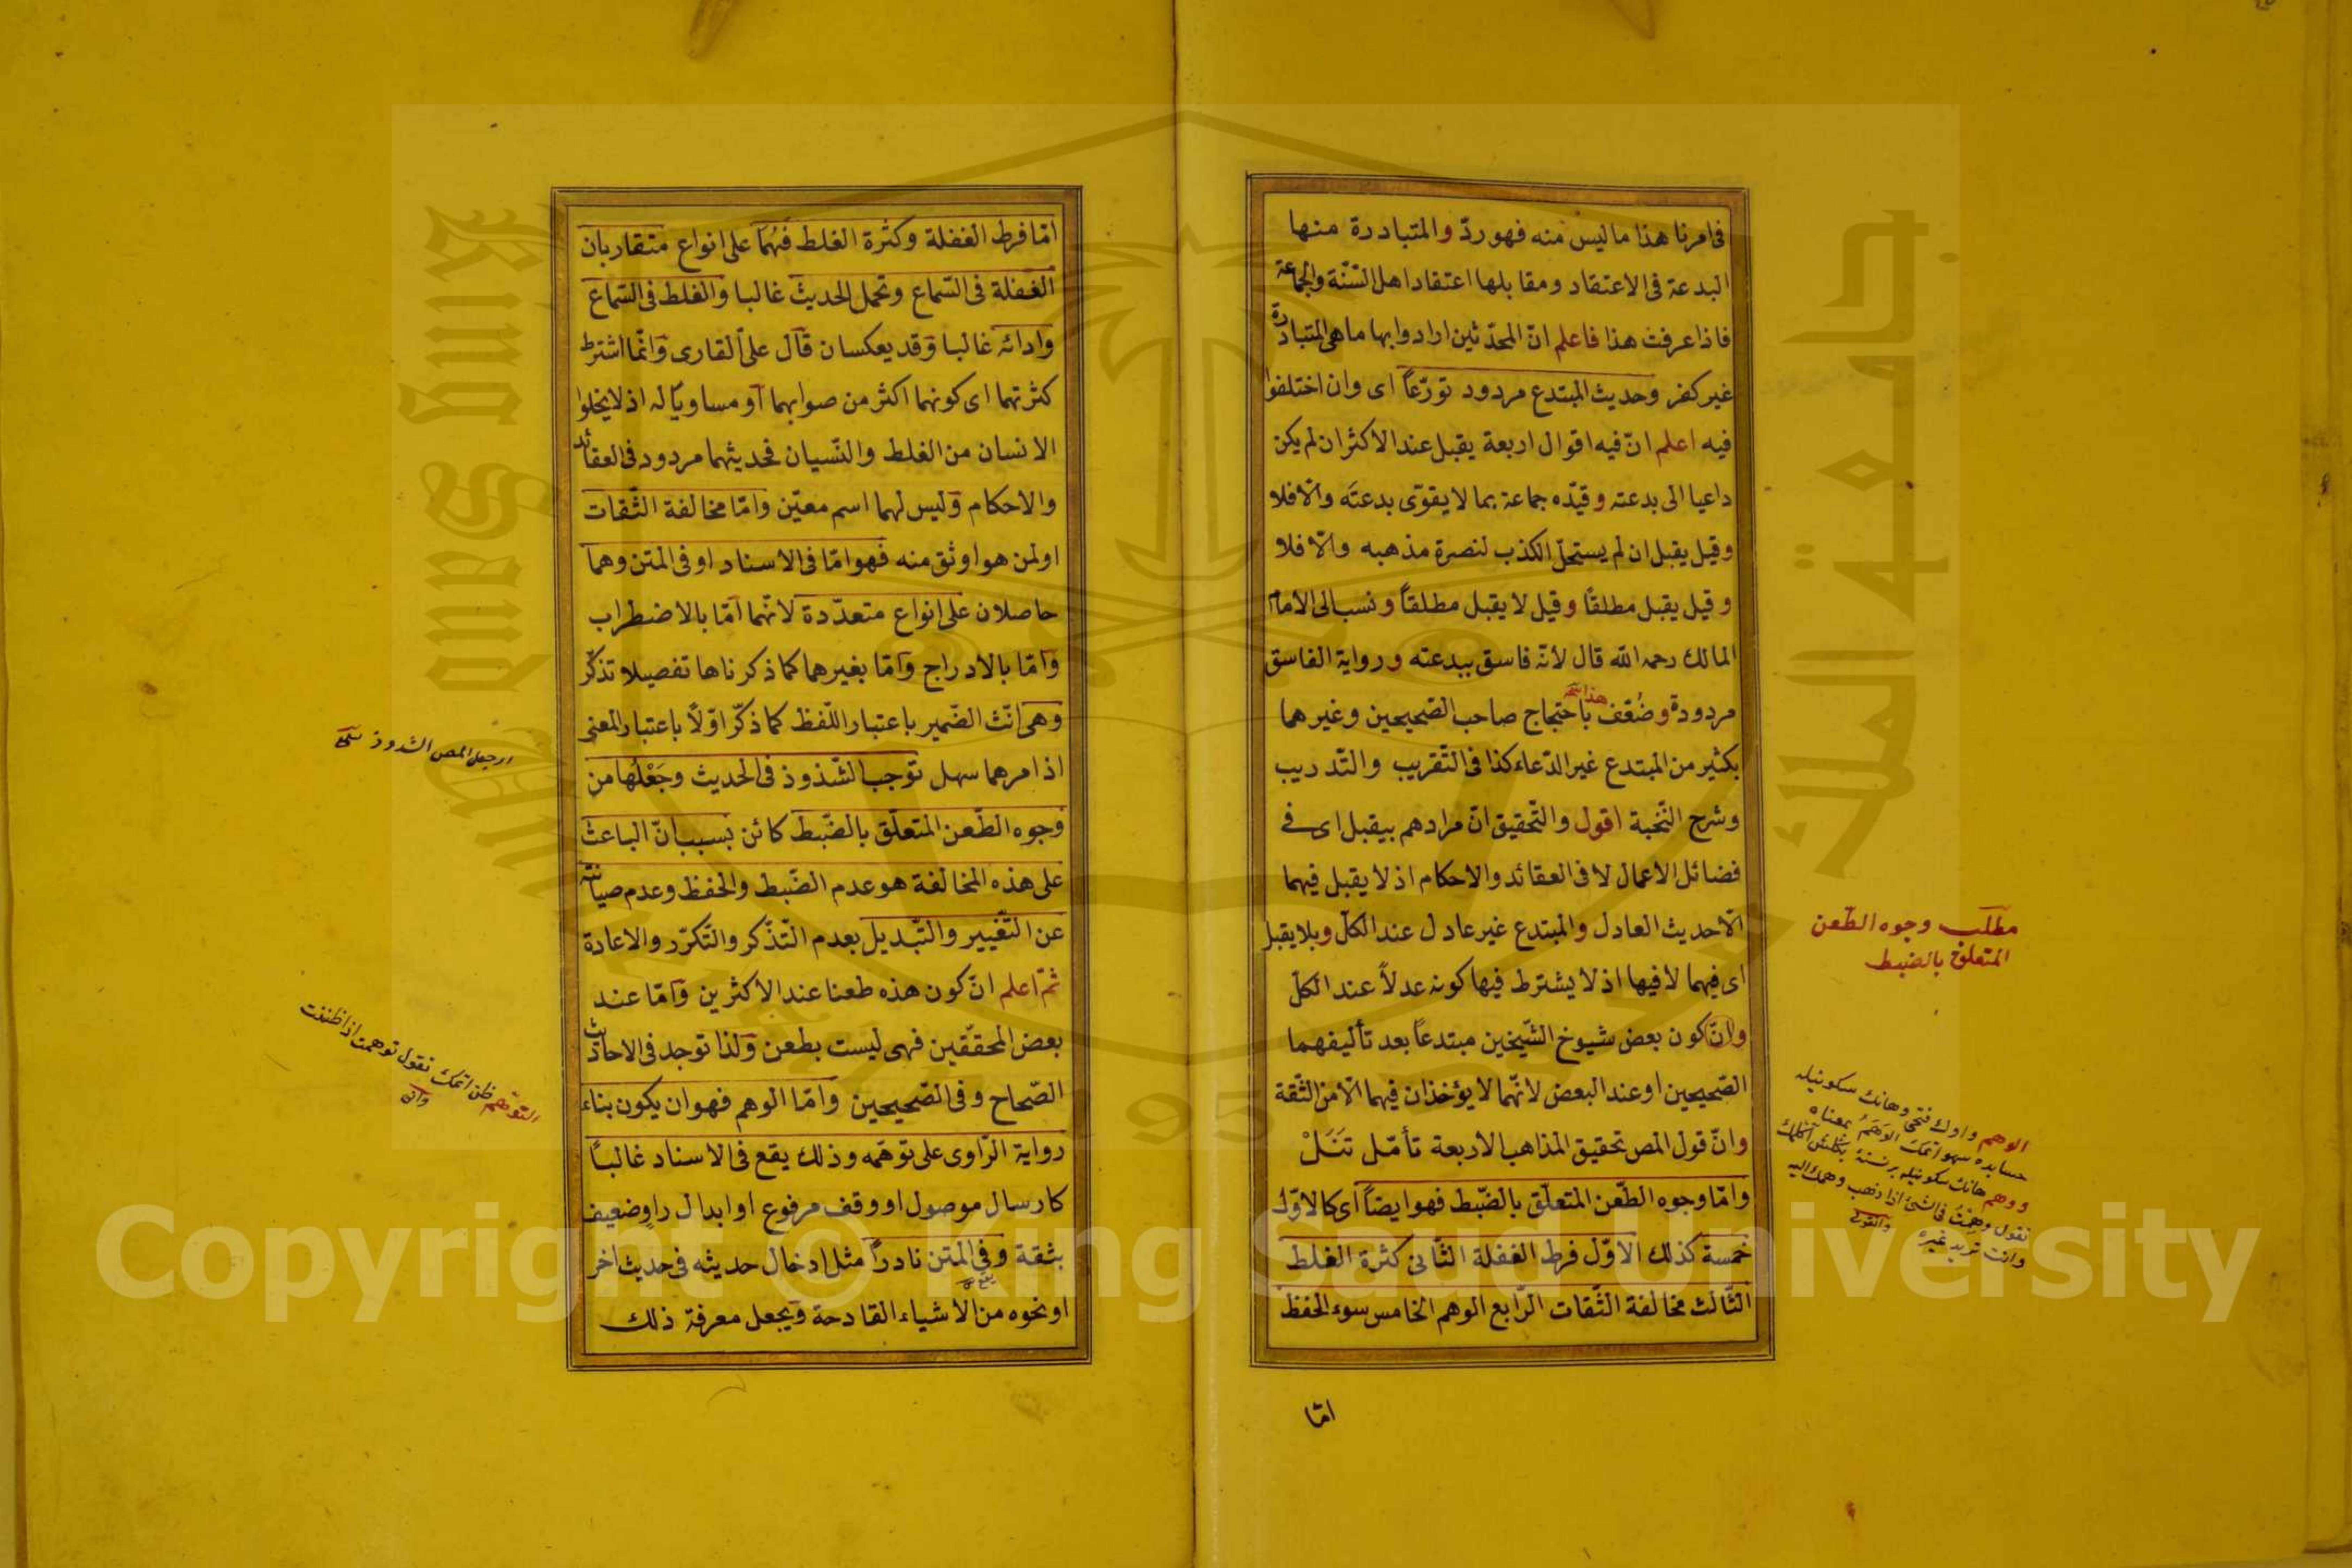 فى امرنا هذا ما ليس منه فهو ردّ والمتبادرة منها
البدعة فى الاعتقاد ومقابلها اعتقاد اهل السّنّة والجماعة
فاذا عرفت هذا فاعلم انّ المحدّثين ارادوا بها ما هى المتبادرة
غير كفر وحديث المبتدع مردود تورّعاً اى وان اختلفوا
فيه اعلم انّ فيه اقوال اربعة يقبل عند الاكثر ان لم يكن
داعيا الى بدعته وقيّده جماعة بما لا يقوّى بدعته والّا فلا
وقيل يقبل ان لم يستحلّ الكذب لنصرة مذهبه والّا فلا
وقيل يقبل مطلقاً وقيل لا يقبل مطلقاً ونسب الى الامام
المالك رحمه الله قال لانّه فاسق ببدعته ورواية الفاسق
مردودة وضُعّف هذا باحتجاج صاحب الصّحيحين وغيرهما
بكثير من المبتدع غير الدّعاء كذا فى التّقريب والتّدريب
وشرح النّخبة اقول والتّحقيق انّ مرادهم بيقبل اى فى
فضائل الاعمال لا فى العقائد والاحكام اذ لا يقبل فيهما
الّا حديث العادل والمبتدع غير عادل عند الكلّ وبلا يقبل
اى فيهما لا فيها اذ لا يشترط فيها كونه عدلاً عند الكلّ
وانّ كون بعض شيوخ الشّيخين مبتدعاً بعد تأليفهما
الصّحيحين او عند البعض لانّهما لا يؤخذان فيهما الّا من الثّقة
وانّ قول المص تحقيق المذاهب الاربعة تأمّل تَنَلْ
وامّا وجوه الطّعن المتعلّق بالضّبط فهو ايضاً اى كالاوّل
خمسة كذلك الاوّل فرط الغفلة الثّانى كثرة الغلط
الثّالث مخالفة الثّقات الرّابع الوهم الخامس سوء الحفظ
امّا
مطلب وجوه الطّعن
المتعلق بالضبط
امّا فرط الغفلة وكثرة الغلط فهُما على انواع متقاربان
الغفلة فى السّماع وتحمل الحديث غالبا والغلط فى السّماع
وادائه غالبا وقد يعكسان قال على القارى وانّما اشترط
كثرتهما اى كونهما اكثر من صوابهما او مساويا له اذ لا يخلوا
الانسان من الغلط والنّسيان فحديثهما مردود فى العقائد
والاحكام وليس لهما اسم معيّن وامّا مخالفة الثّقات
او لمن هو اوثق منه فهو امّا فى الاسناد او فى المتن وهما
حاصلان على انواع متعدّدة لانّهما امّا بالاضطراب
وامّا بالادراج وامّا بغيرهما كما ذكرناها تفصيلا تذكّر
وهى انّث الضّمير باعتبار اللّفظ كما ذكّر اوّلاً باعتبار المعنى
اذ امرهما سهل توجب الشّذوذ فى الحديث وجَعْلُها من
وجوه الطّعن المتعلّق بالضّبط كائن بسبب انّ الباعث
على هذه المخالفة هو عدم الضّبط والحفظ وعدم صيانته
عن التّغيير والتّبديل بعدم التّذكّر والتّكرّر والاعادة
ثمّ اعلم انّ كون هذه طعنا عند الاكثرين وامّا عند
بعض المحقّقين فهى ليست بطعن ولذا توجد فى الاحاديث
الصّحاح وفى الصّحيحين وامّا الوهم فهو ان يكون بناء
رواية الرّاوى على توهّمه وذلك يقع فى الاسناد غالباً
كارسال موصول او وقف مرفوع او ابدال راوٍ ضعيف
بثقة وفى المتن نادراً مثل ادخال حديثه فى حديث اخر
او نحوه من الاشياء القادحة ويجعل معرفة ذلك
التّوهّم ظن اتمك تقول توهمت اذا ظننت
Copyright © King Saud University
King Saud University
جامعة الملك